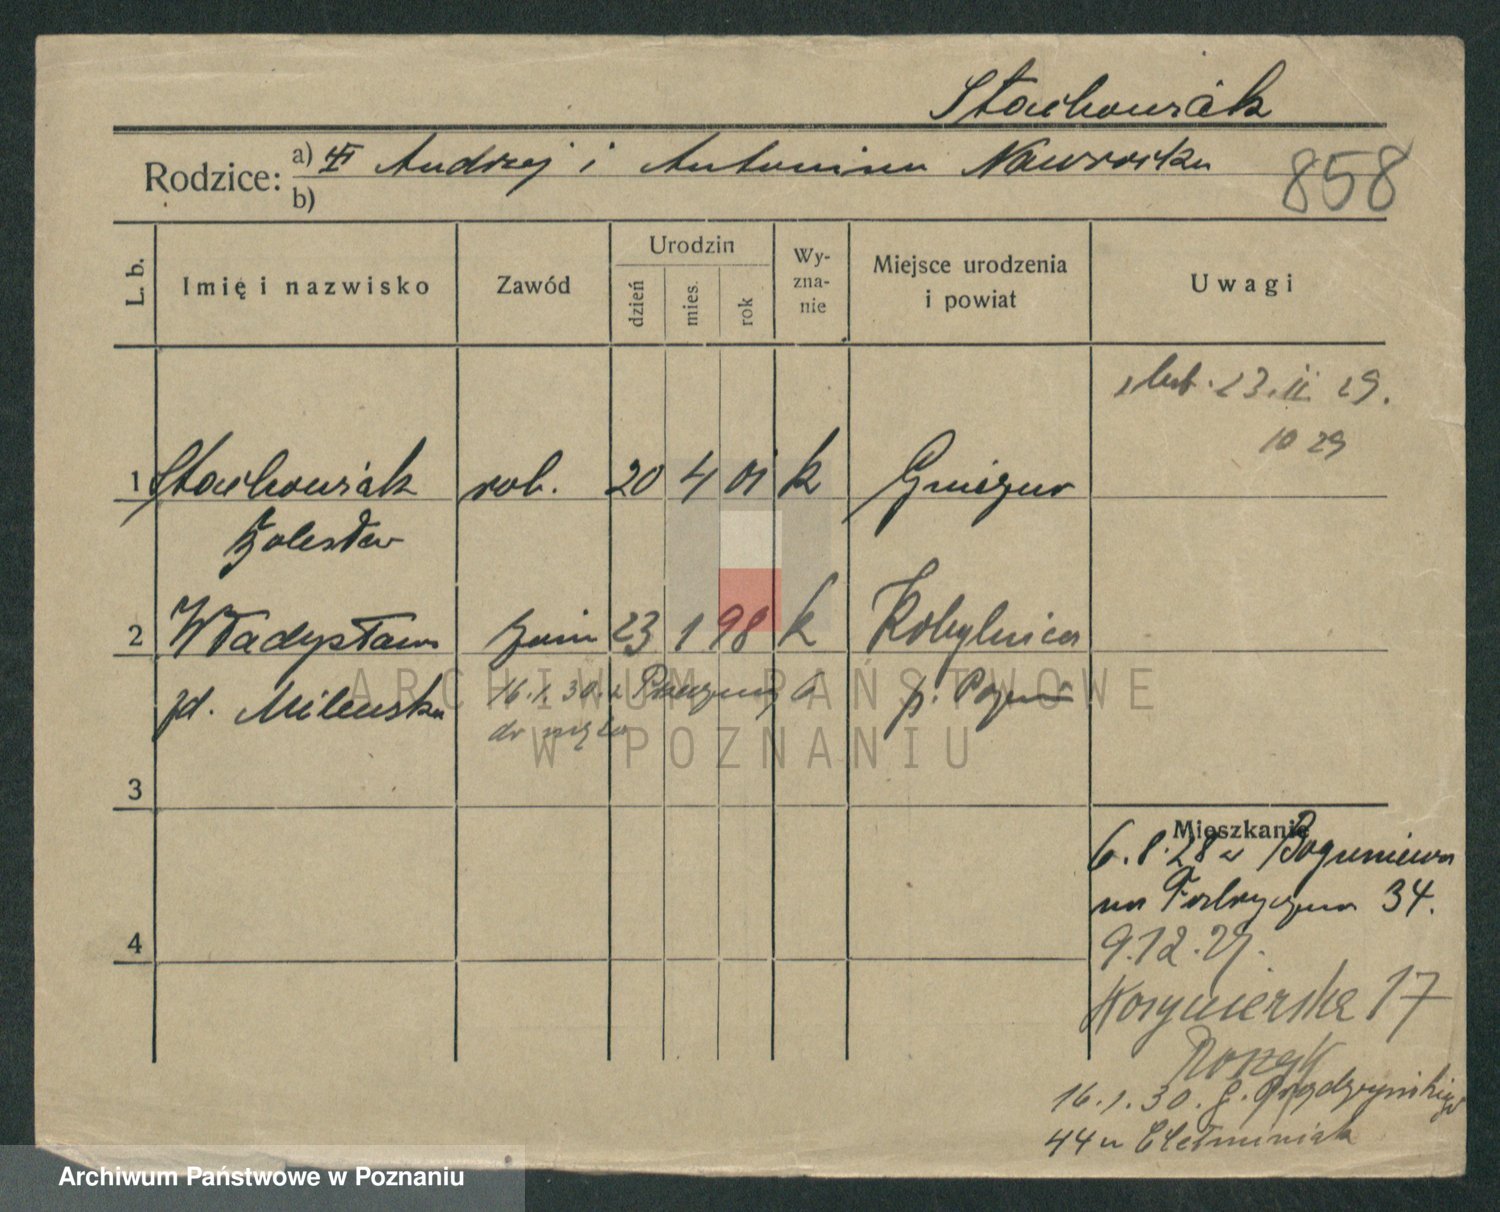 Stachowiak
Rodzice: a) Andrzej i Antonina Nawrocka
b)
858
L. b.
Imię i nazwisko
Zawód
Urodzin
dzień
mies.
rok
Wy-
zna-
nie
Miejsce urodzenia
i powiat
Uwagi
ślub. 23.II 29.
10 29
1 Stachowiak rob. 20 4 01 k Gniezno
Bolesław
2 Władysława 23 1 98 k Kobylnica
zd. Milewska 16.1.30. z p. Pozn
do męża
3
4
Mieszkanie
6.8.28 z Boguniewa
na Fabryczna 34.
9.12.29.
17
16.1.30. g. Prądzyńskiego
44 u
ARCHIWUM PAŃSTWOWE
W POZNANIU
Archiwum Państwowe w Poznaniu